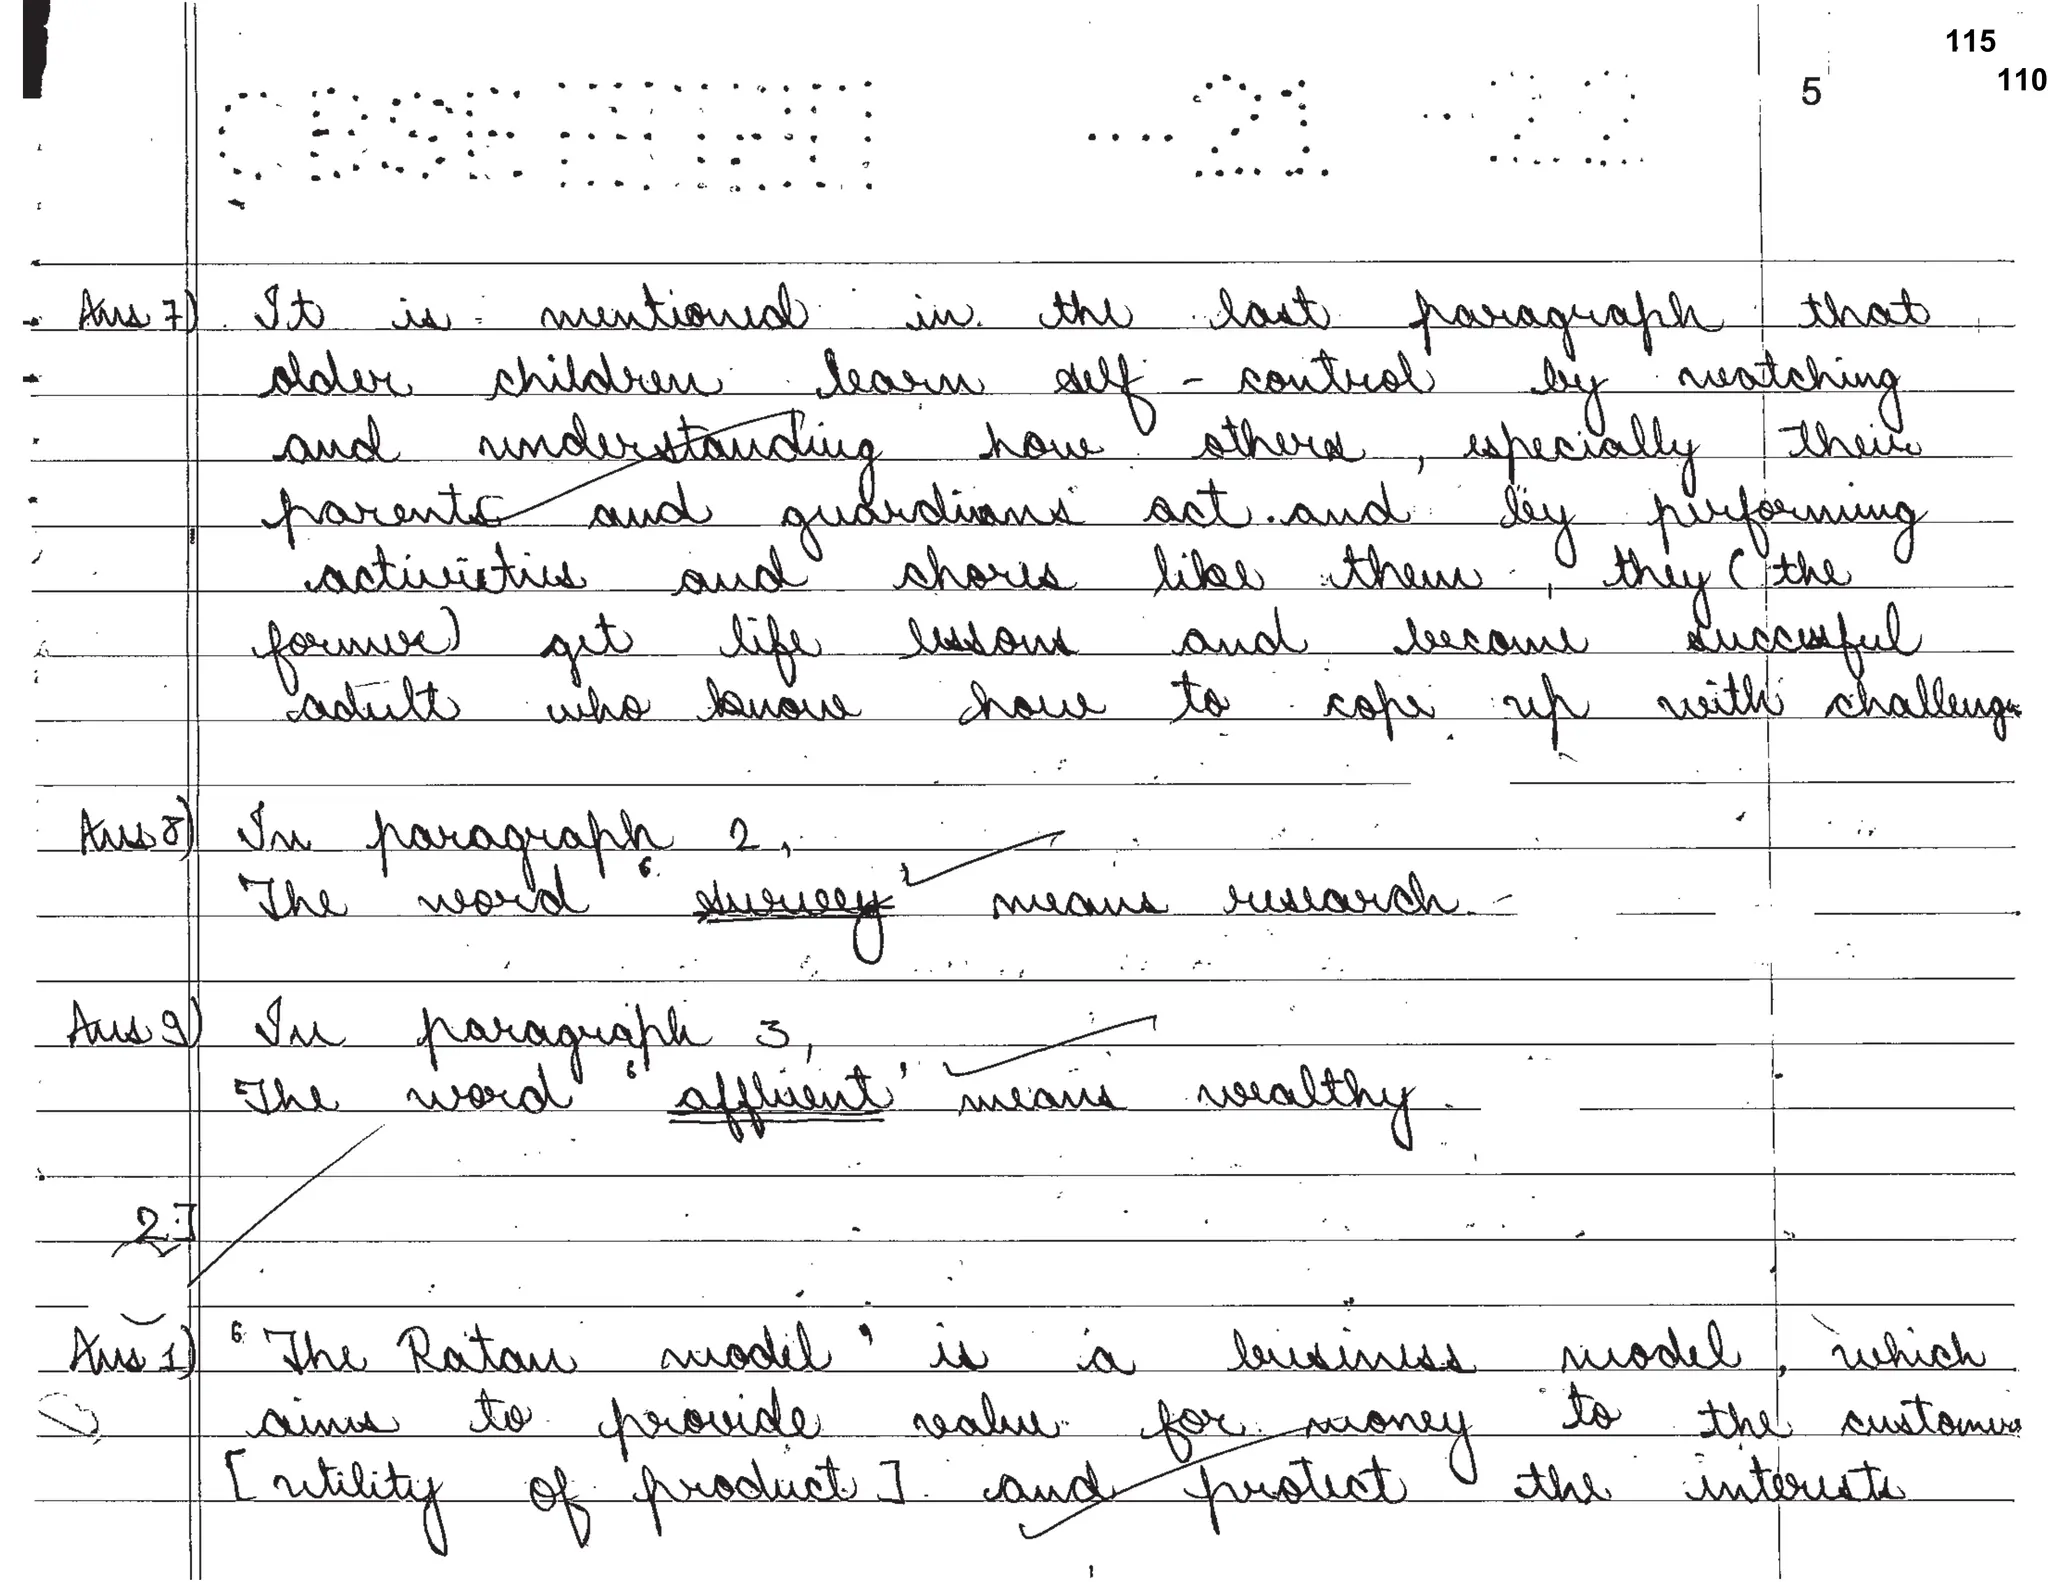 115
110
5
CBSE
21
22
Ans 7) It is mentioned in the last paragraph that
older children learn self - control by watching
and understanding how others, especially their
parents and guardians act. and by performing
activities and chores like them, they (the
former) get life lessons and become succesful
adult who know how to cope up with challenges
Ans 8) In paragraph 2,
The word ‘survey’ means research.
Ans 9) In paragraph 3,
The word ‘affluent’ means wealthy.
2.]
Ans 1) ‘The Ratan model’ is a business model, which
aims to provide value for money to the customers
[utility of product] and protect the interests